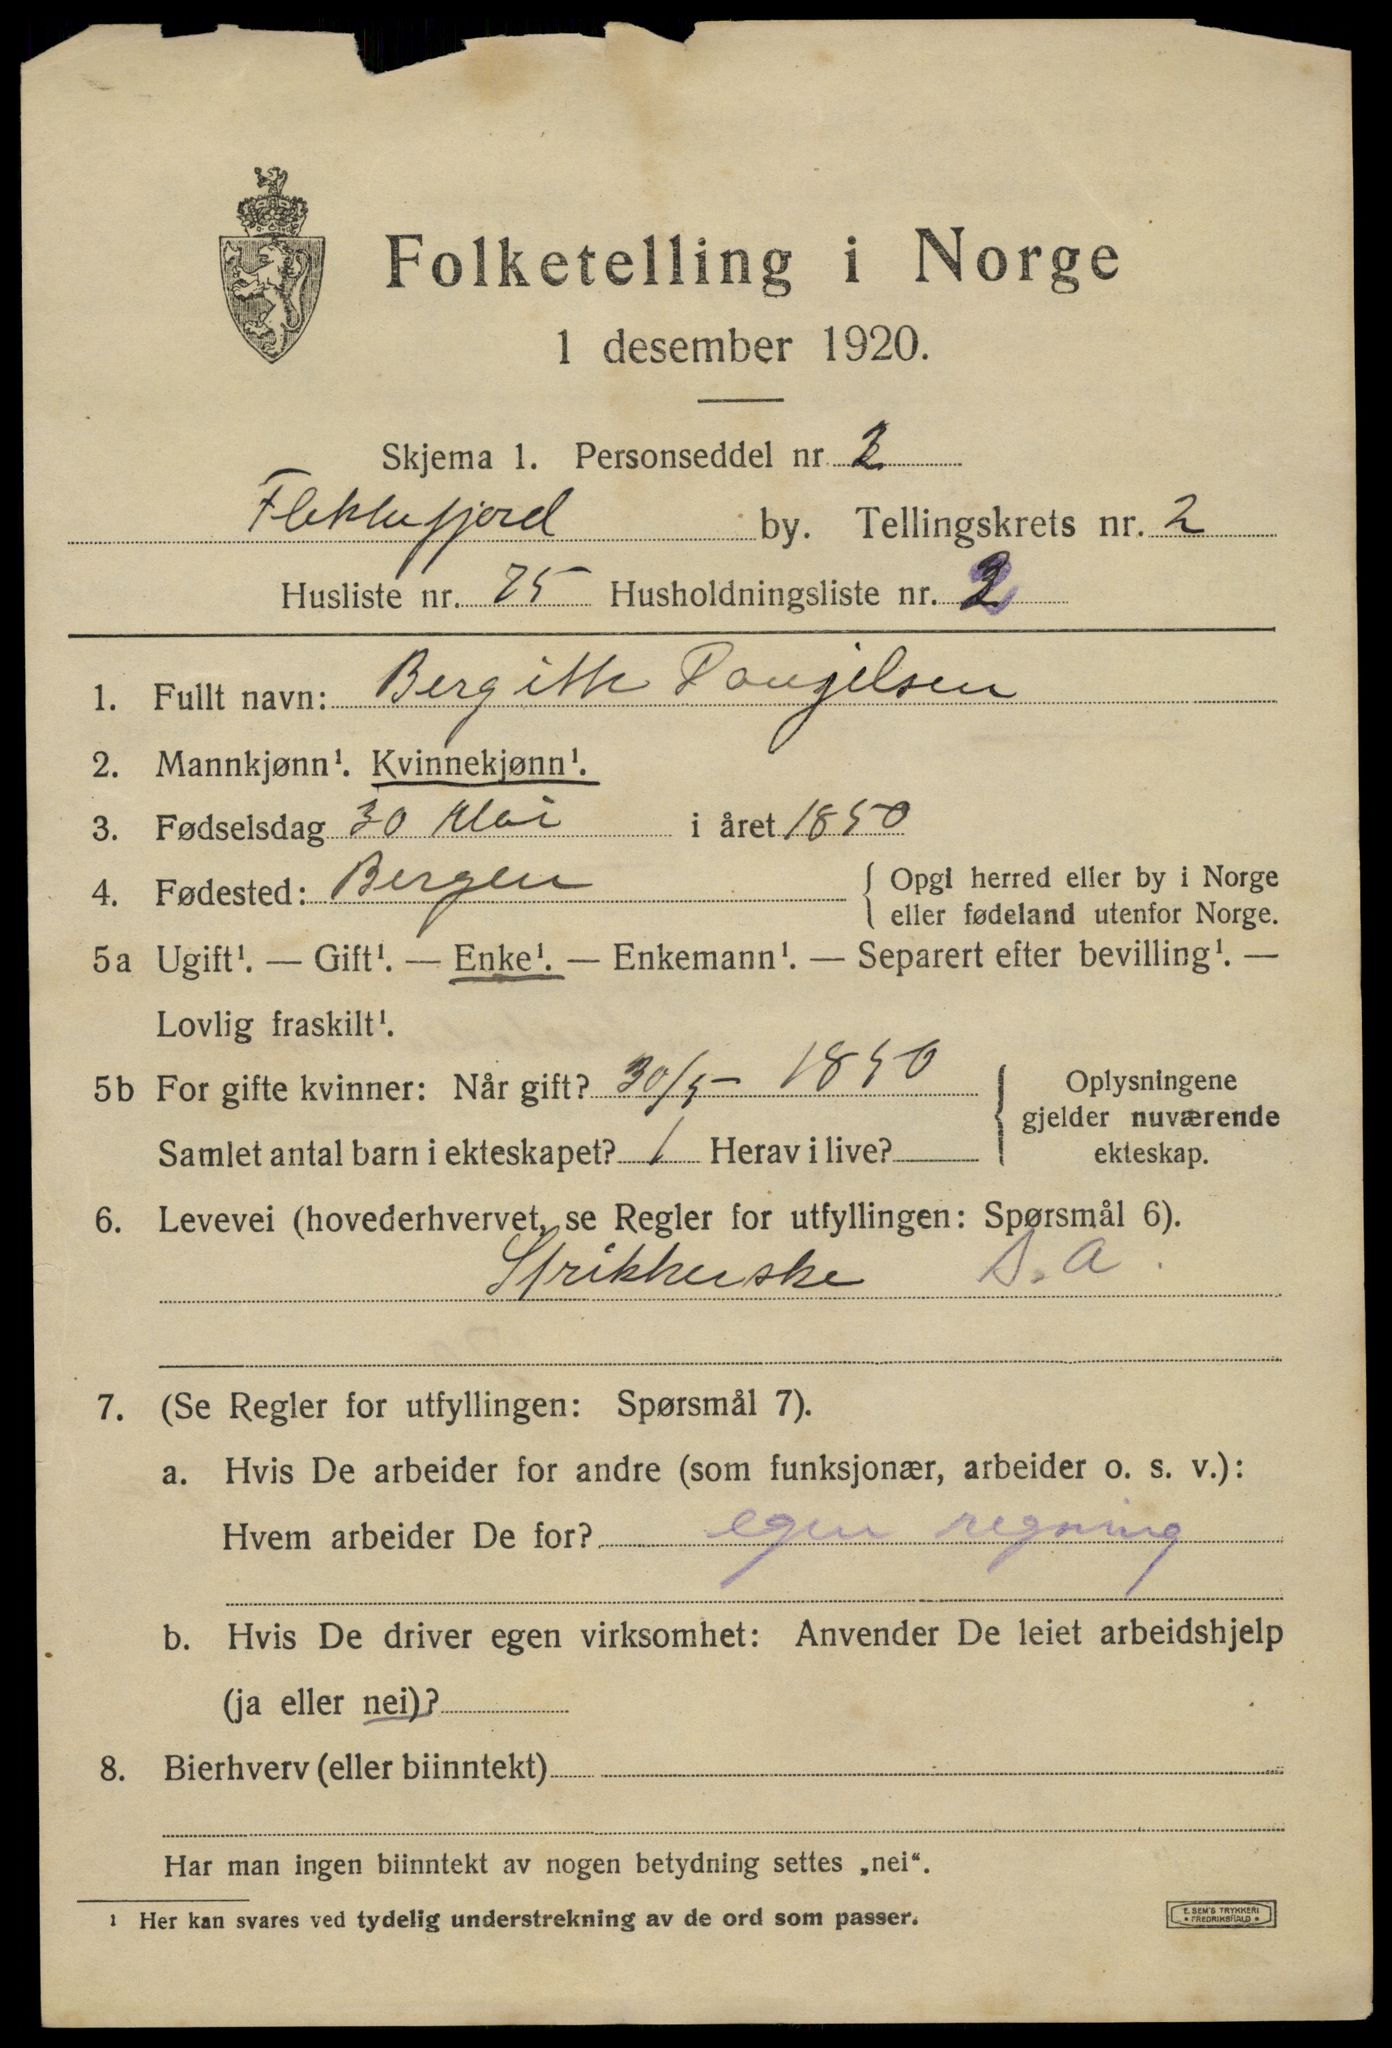 Folketelling i Norge
1 desember 1920.
Skjema 1. Personseddel nr. 2
Flekkefjord by. Tellingskrets nr. 2
Husliste nr. 75 Husholdningsliste nr. 2
1. Fullt navn: Bergitte
2. Mannkjønn¹. Kvinnekjønn¹.
3. Fødselsdag 30 Mai i året 1850
4. Fødested: Bergen { Opgi herred eller by i Norge
eller fødeland utenfor Norge.
5a Ugift¹. — Gift¹. — Enke¹. — Enkemann¹. — Separert efter bevilling¹. —
Lovlig fraskilt¹.
5b For gifte kvinner: Når gift? 30/5 – 1850 { Oplysningene
gjelder nuværende
Samlet antal barn i ekteskapet? 1 Herav i live?
ekteskap.
6. Levevei (hovederhvervet, se Regler for utfyllingen: Spørsmål 6).
Strikkerske S. A.
7. (Se Regler for utfyllingen: Spørsmål 7).
a. Hvis De arbeider for andre (som funksjonær, arbeider o. s. v.):
Hvem arbeider De for? egen regning
b. Hvis De driver egen virksomhet: Anvender De leiet arbeidshjelp
(ja eller nei)?
8. Bierhverv (eller biinntekt)
Har man ingen biinntekt av nogen betydning settes „nei“.
¹ Her kan svares ved tydelig understrekning av de ord som passer.
E. SEM'S TRYKKERI
• FREDRIKSHALD •